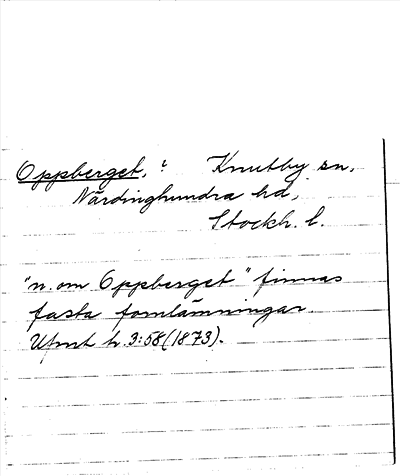 Oppberget, i Knutby sn,
Närdinghundra hd,
Stockh. l.
"n. om Oppberget" finnas
fasta fornlämningar.
Ufmt h. 3:58 (1873).